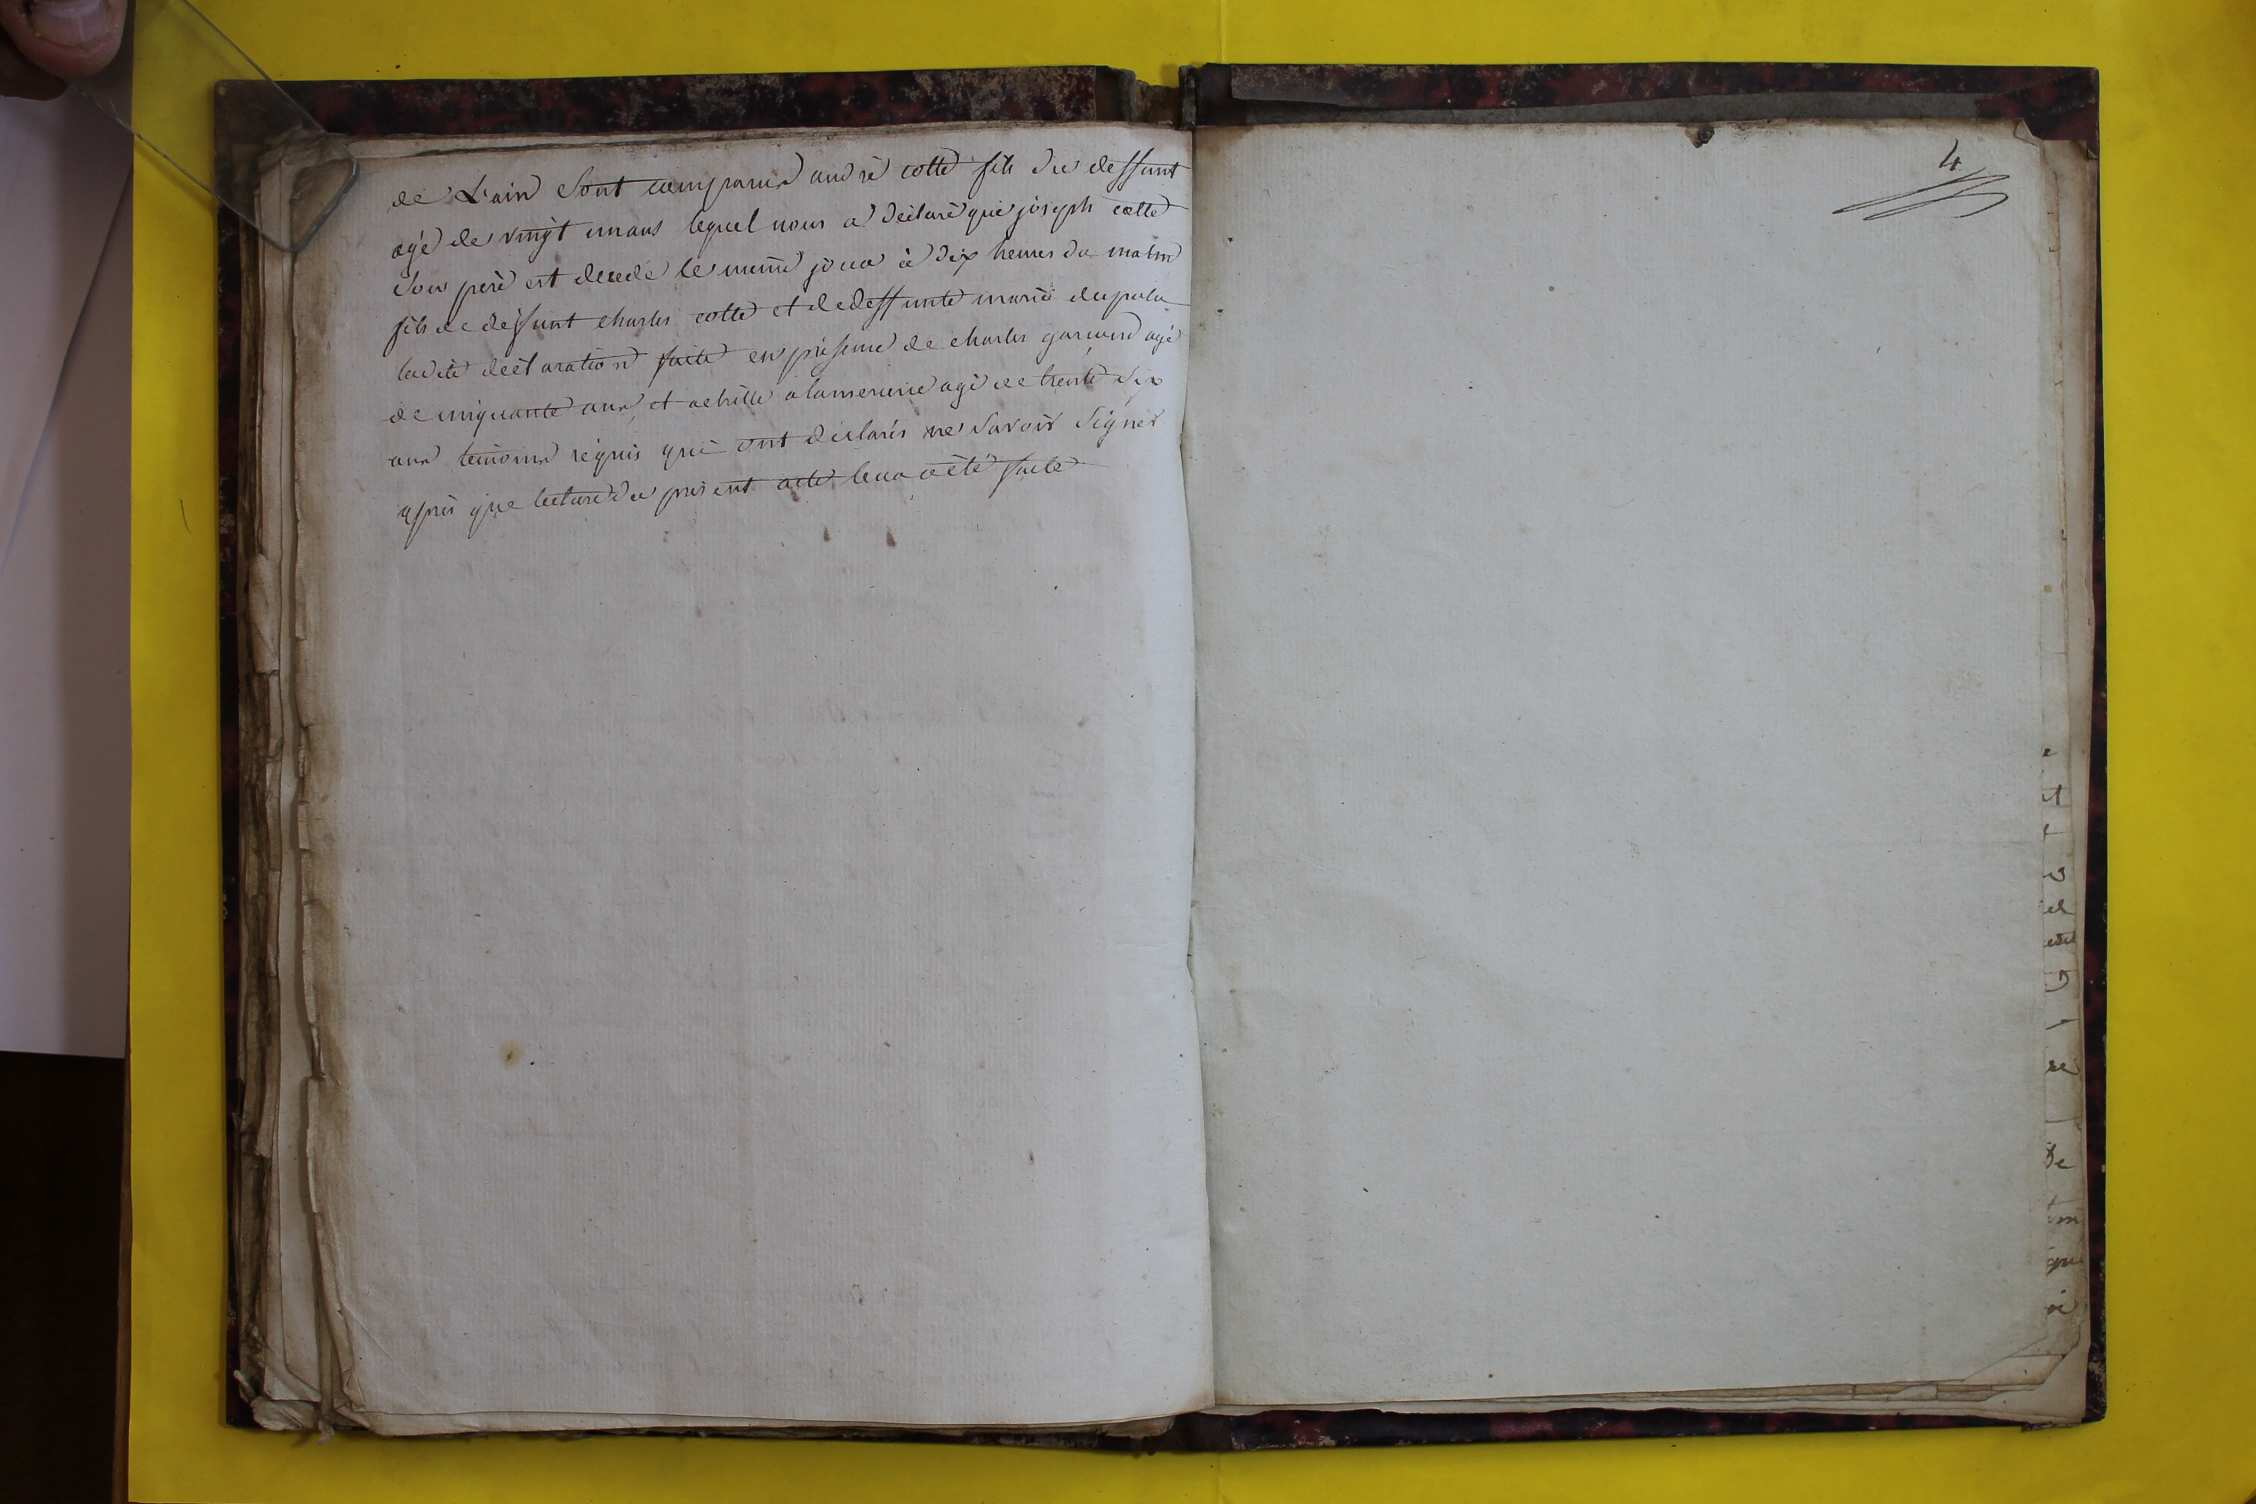 de L'ain Sont comparus andré cotte fils du deffunt
agé de vingt un ans lequel nous a déclaré que joseph cotte
Son peré est decedé le même jour à dix heures du matin
fils de deffunt charles cotte et de deffunte marie
ladite déclaration faite en présence de charles agé
de cinquante ans et achille alamercerie agé de trente six
ans temoins requis qui ont déclarés ne Savoir Signer
après que lecture du present acte leur a été faite
4